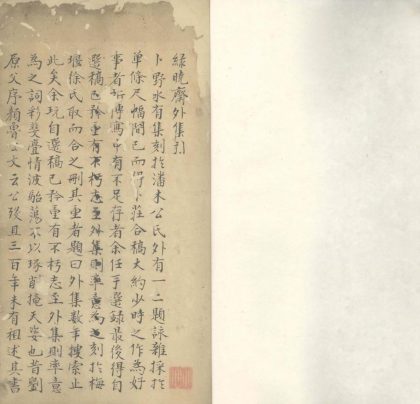 綠曉齋外集引
卜野水有集刻於潘未公氏外有一二題詠雜採於
單條尺幅間已而得卜莊合稿大約少時之作為好
事者所傳寫中有不足存者余任手選錄最後得自
選稿已矜重有不朽志至外集則率意為之刻於梅
堰徐氏取而合之刪其重者題曰外集數年搜索止
此矣余玩自選稿已矜重有不朽志至外集則率意
為之詞彩斐亹情波駘蕩不以琢削掩天姿也昔劉
原父序穎魯公文云公歿且三百年未有祖述其書